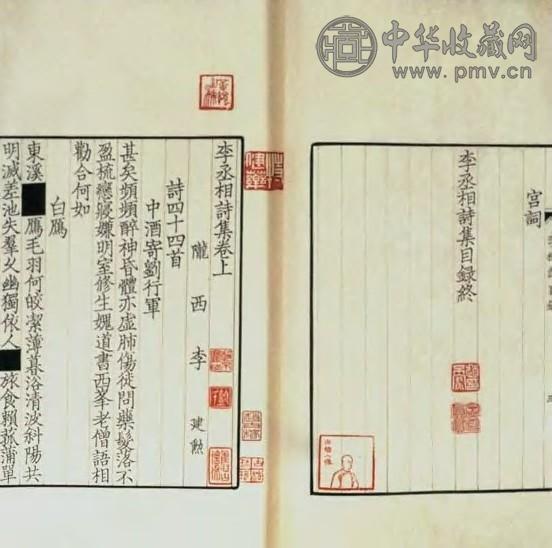 中华收藏网
www.pmv.cn
宫詞
李丞相詩集目録終
李丞相詩集卷上
隴西李建勲
詩四十四首
中酒寄劉行軍
甚矣頻頻醉神昏體亦虚肺傷徒問藥髮落不
盈梳戀寢嫌明室修生媿道書西峯老僧語相
勸合何如
白鴈
東溪■鴈毛羽何皎潔薄暮浴清波斜陽共
明滅差池失羣久幽獨依人■旅食賴菰蒲單